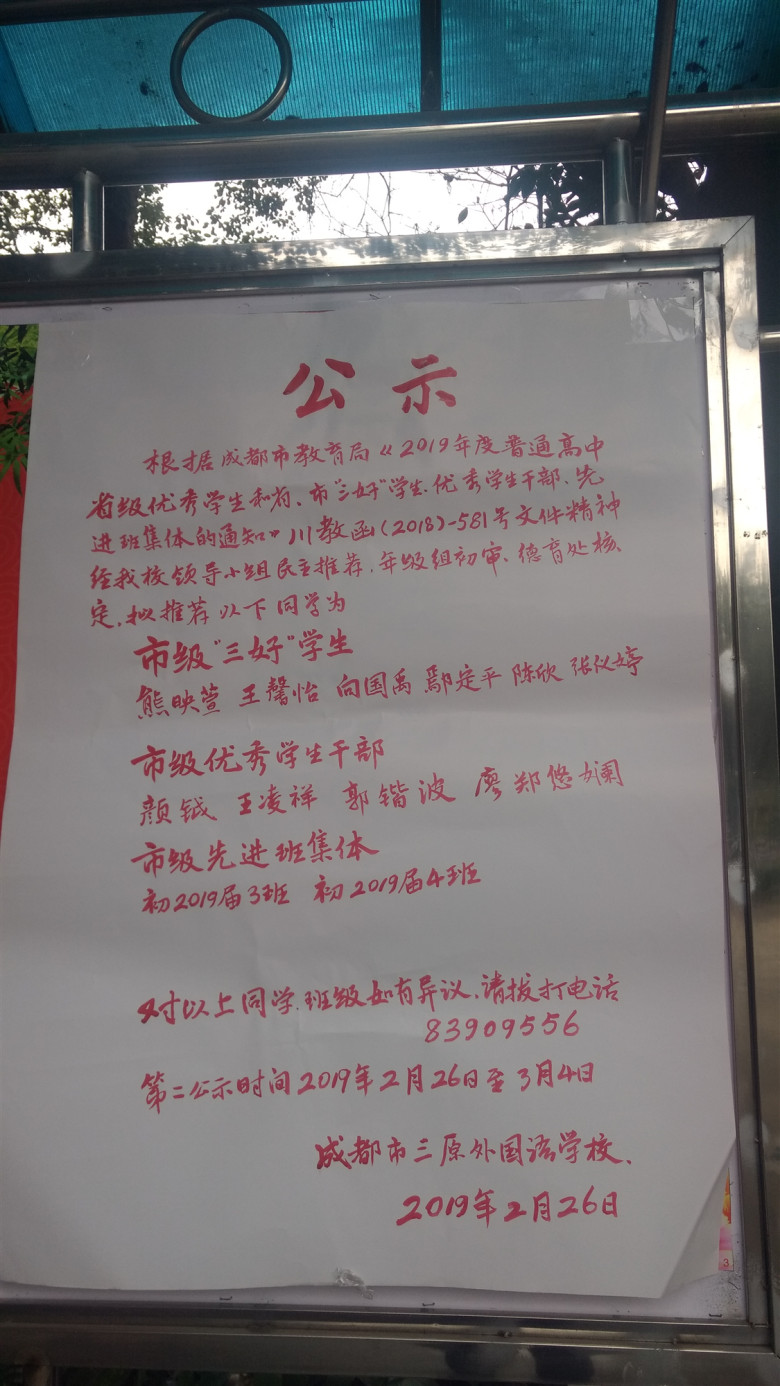 公示
根据成都市教育局《2019年度普通高中
省级优秀学生和省、市"三好"学生、优秀学生干部、先
进班集体的通知》川教函(2018)-581号文件精神
经我校领导小组民主推荐、年级组初审、德育处核
定，拟推荐以下同学为
市级"三好"学生
熊映萱 王馨怡 向国禹 鄢定平 陈欣 张仪婷
市级优秀学生干部
颜钺 王凌祥 郭锴波 廖郑悠斓
市级先进班集体
初2019届3班 初2019届4班
对以上同学、班级如有异议、请拨打电话
83909556
第二公示时间2019年2月26日至3月4日
成都市三原外国语学校、
2019年2月26日
3